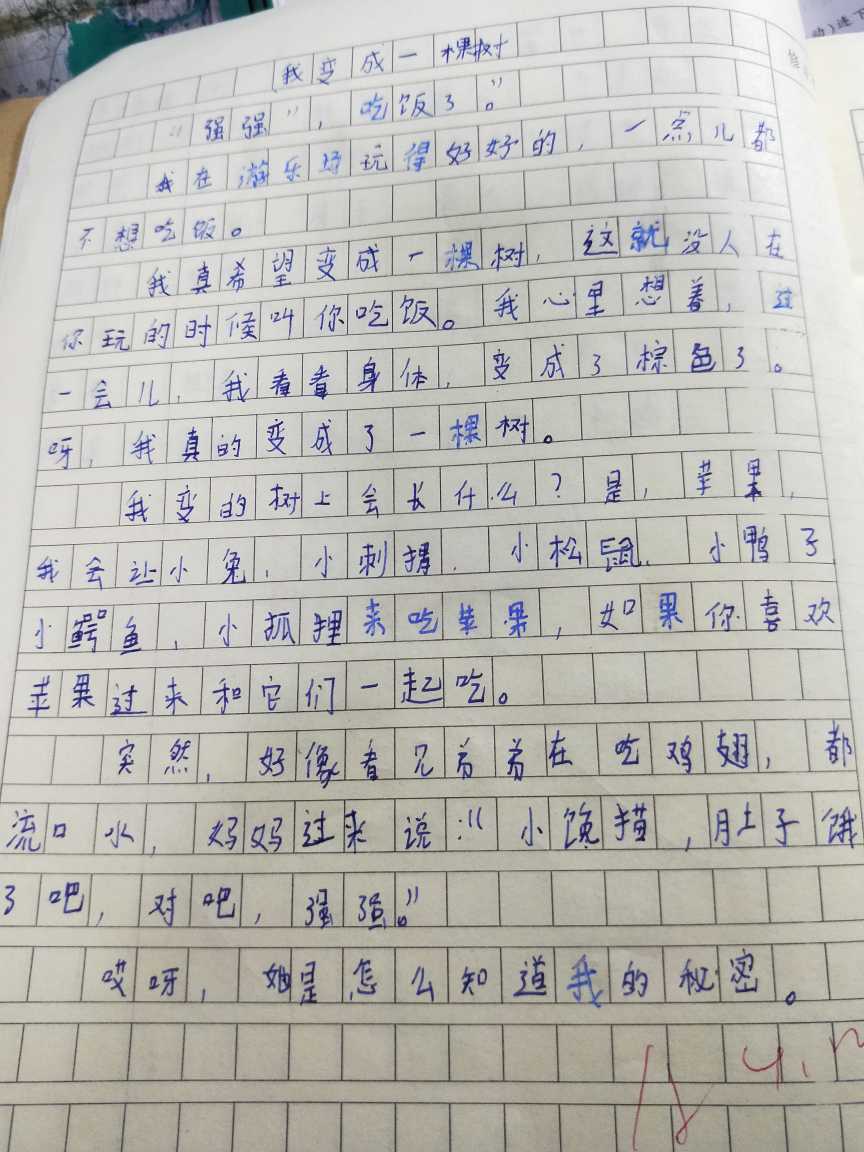 我变成一棵树
“强强”，吃饭了。”
我在游乐场玩得好好的，一点儿都
不想吃饭。
我真希望变成一棵树，这就没人在
你玩的时候叫你吃饭。我心里想着，过
一会儿，我看看身体，变成了棕色了。
呀，我真的变成了一棵树。
我变的树上会长什么？是，苹果，
我会让小兔、小刺猬、小松鼠、小鸭子
小鳄鱼，小狐狸来吃苹果，如果你喜欢
苹果过来和它们一起吃。
突然，好像看见弟弟在吃鸡翅，都
流口水，妈妈过来说：“小馋猫，肚子饿
了吧，对吧，强强。”
哎呀，她是怎么知道我的秘密。